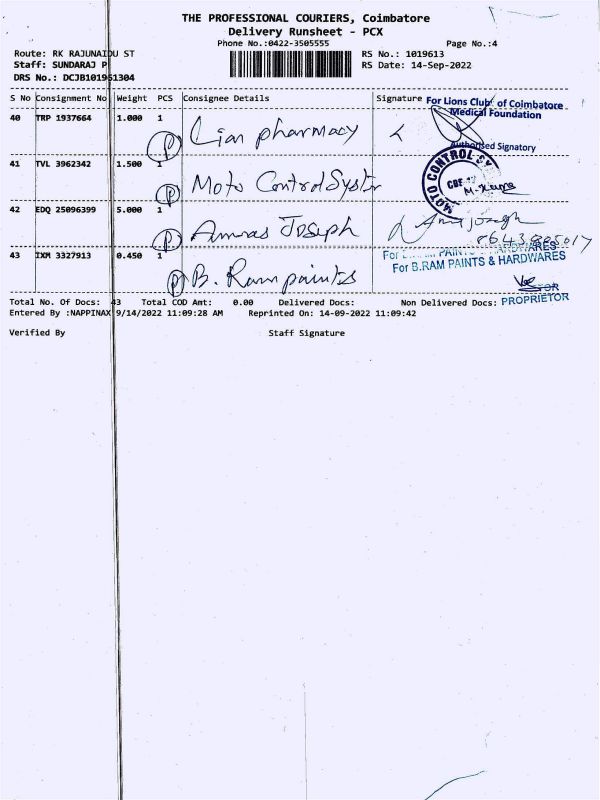 THE PROFESSIONAL COURIERS, Coimbatore
Delivery Runsheet - PCX
Phone No.:0422-3505555
Page No.:4
Route: RK RAJUNAIDU ST
RS No.: 1019613
Staff: SUNDARAJ P
RS Date: 14-Sep-2022
DRS No.: DCJB101961304
S No Consignment No Weight PCS Consignee Details Signature
For Lions Club of Coimbatore
Medical Foundation
40 TRP 1937664 1.000 1 Lian pharmacy
Authorised Signatory
41 TVL 3962342 1.500 1 Moto Control System
MOTO CONTROL SY
CBE
42 EDQ 25096399 5.000 1 Amras Joseph
43 IXM 3327913 0.450 1 B. Ram paints
For B.RAM PAINTS & HARDWARES
PROPRIETOR
Total No. Of Docs: 43 Total COD Amt: 0.00 Delivered Docs: Non Delivered Docs:
Entered By :NAPPINAX 9/14/2022 11:09:28 AM Reprinted On: 14-09-2022 11:09:42
Verified By Staff Signature